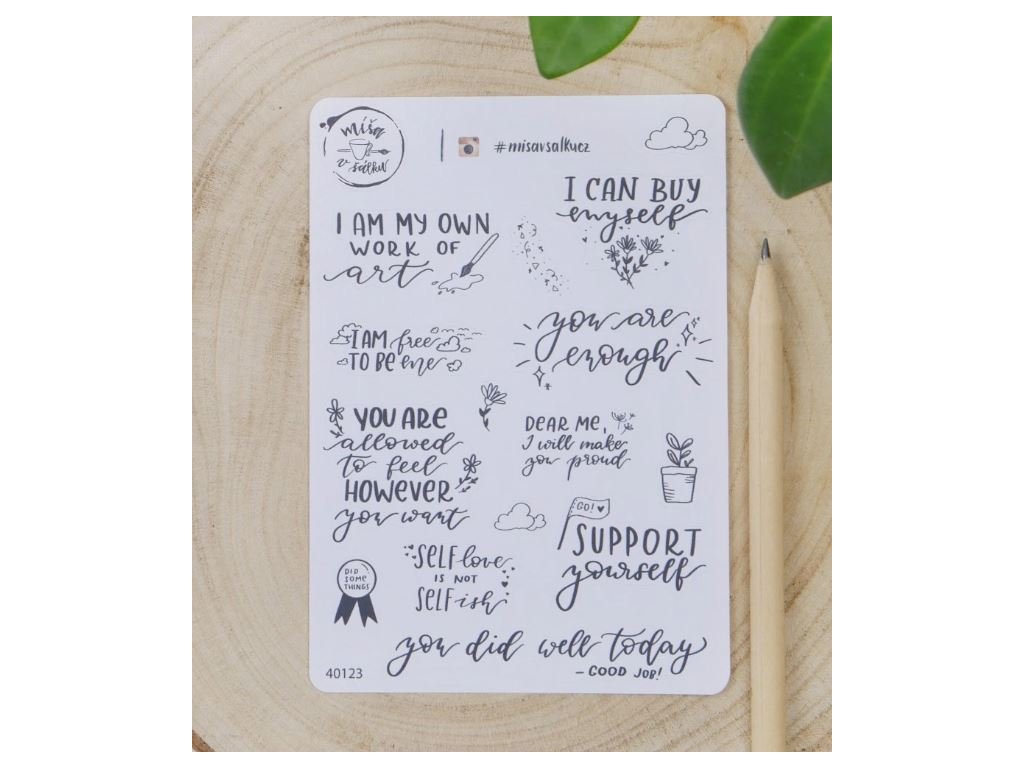 míša
v šálku
#misavsalkucz
I CAN BUY
myself
I AM MY OWN
WORK OF
art
I AM free
TO BE me
you are
enough
YOU ARE
allowed
to feel
HOWEVER
you want
DEAR ME,
I will make
you proud
GO!
SUPPORT
yourself
DID
SOME
THINGS
SELF love
IS NOT
SELFish
you did well today
– GOOD JOB!
40123